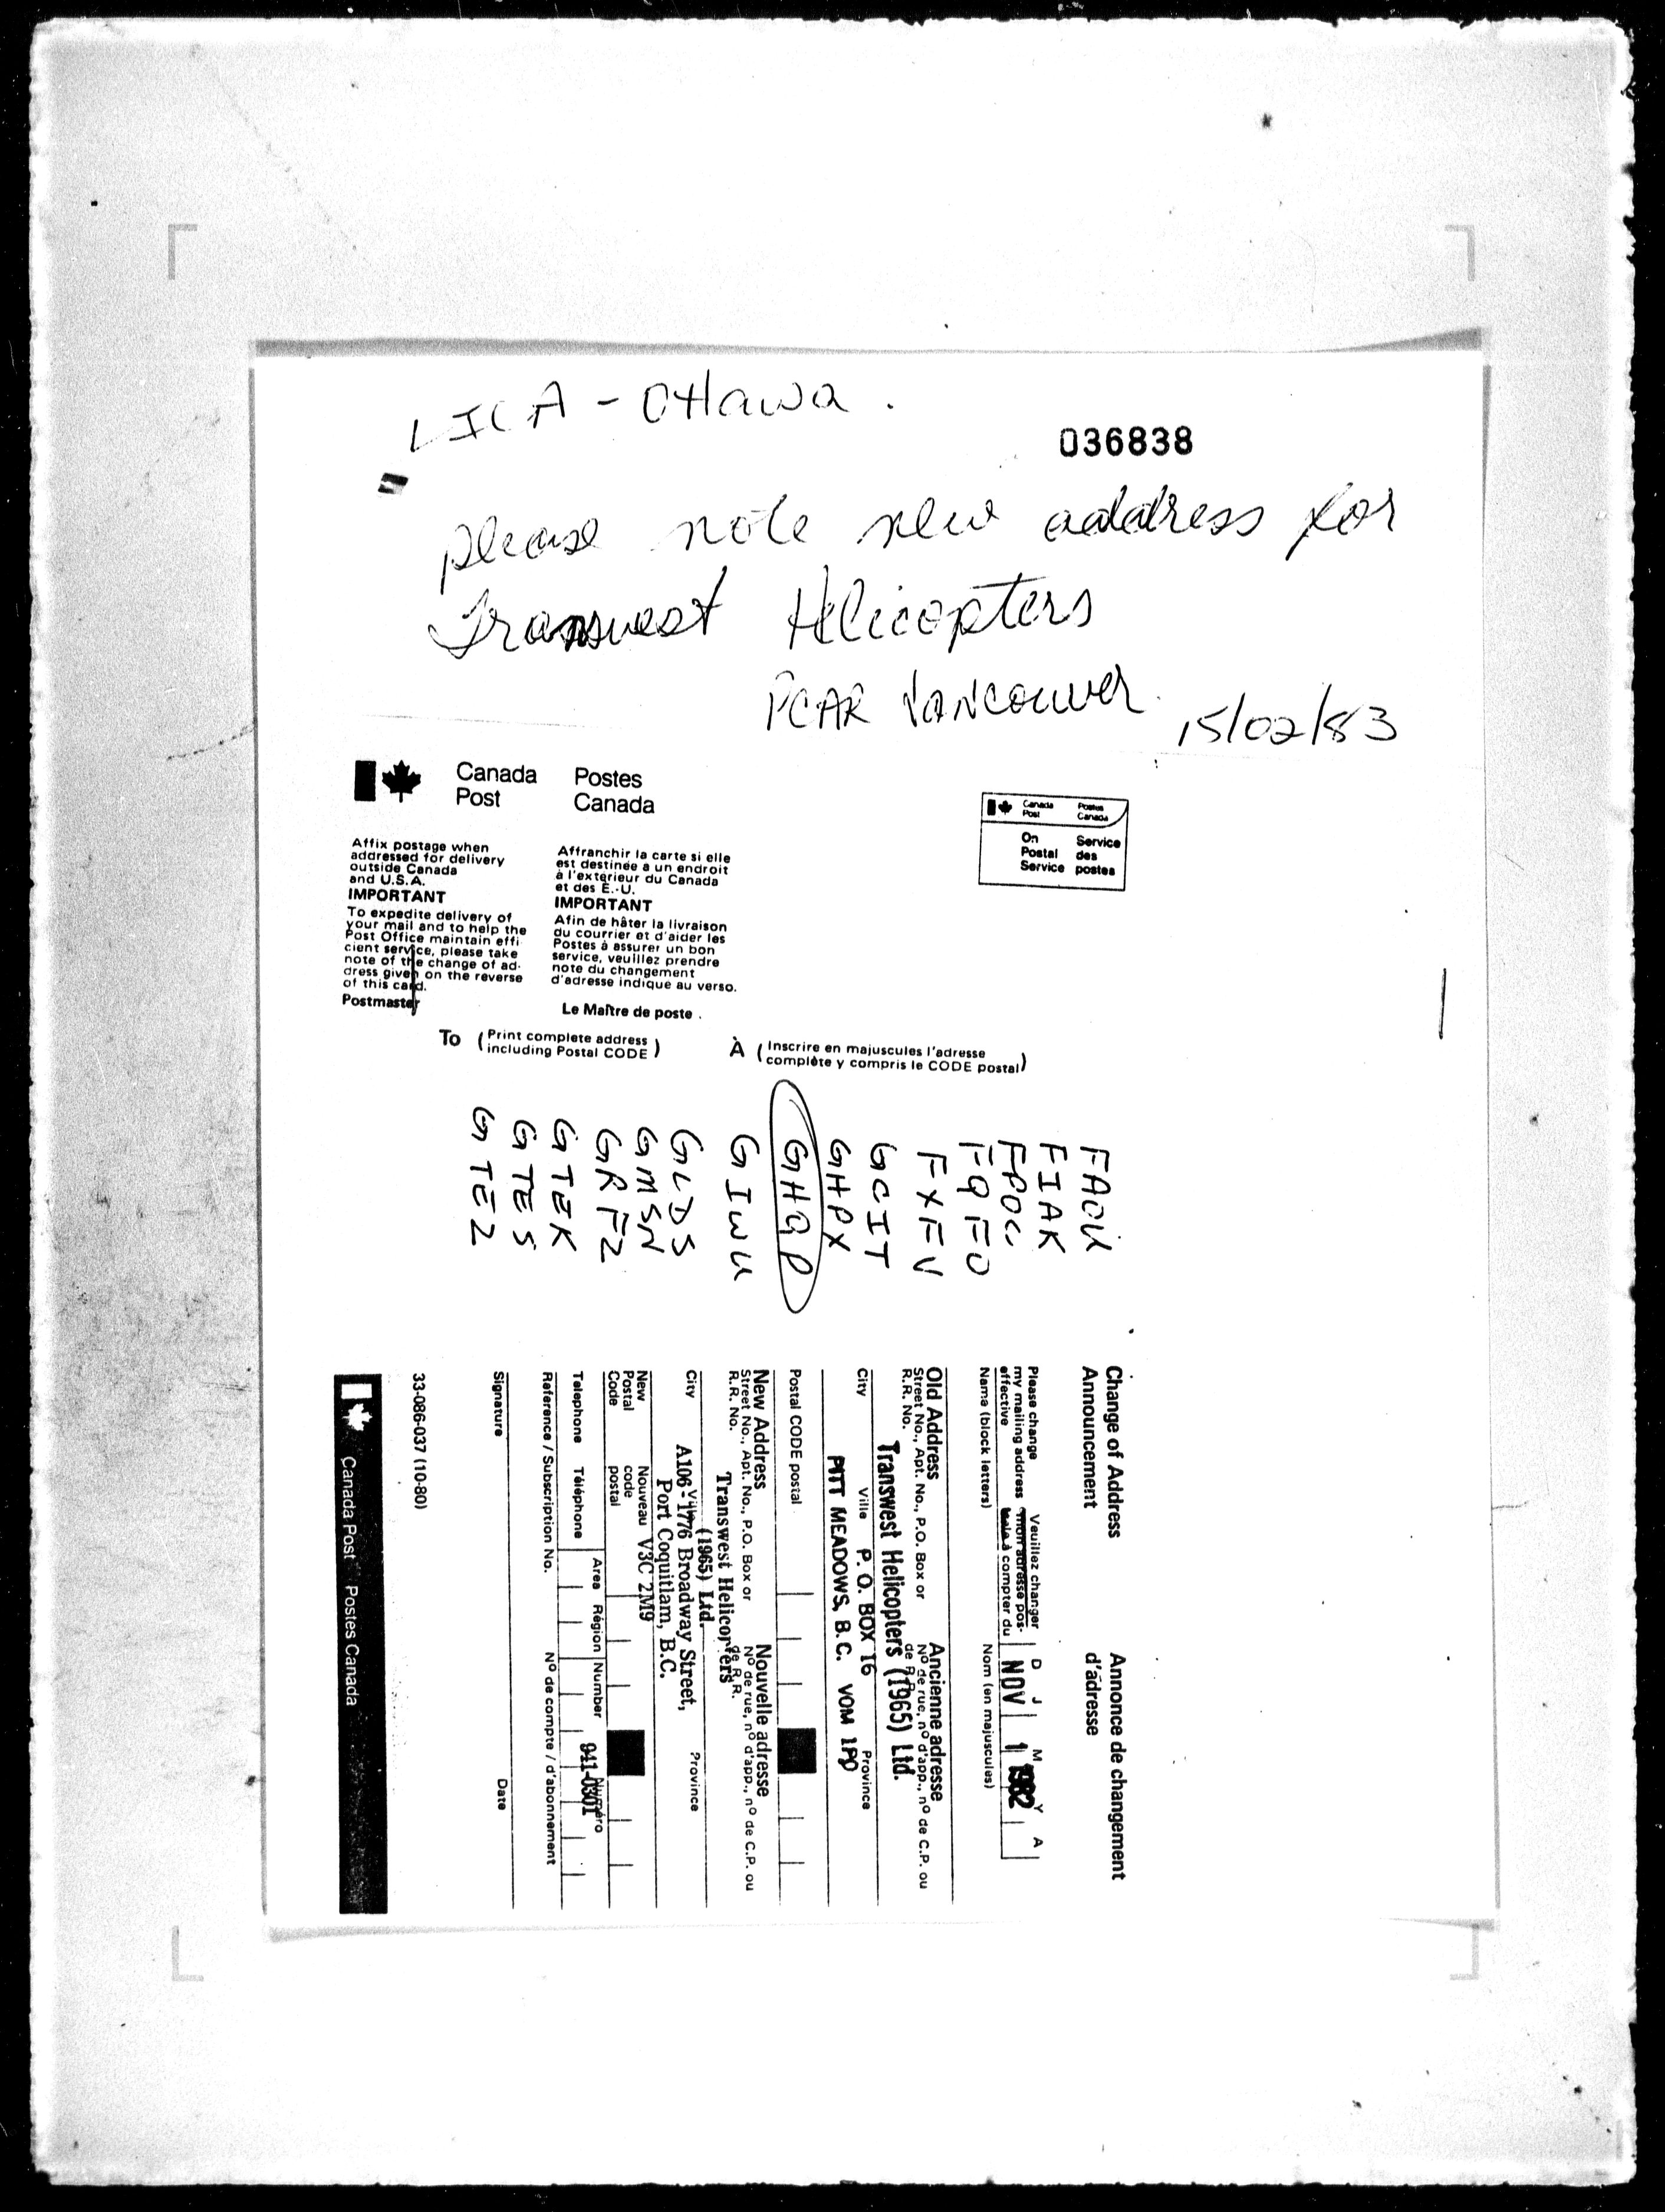 LICA - Ottawa.
036838
please note new address for
Transwest Helicopters
PCAR VANCOUVER.
15/02/83
Canada Post
Postes Canada
Affix postage when
addressed for delivery
outside Canada
and U.S.A.
IMPORTANT
To expedite delivery of
your mail and to help the
Post Office maintain effi-
cient service, please take
note of the change of ad-
dress given on the reverse
of this card.
Postmaster
Affranchir la carte si elle
est destinée a un endroit
à l'extérieur du Canada
et des É.-U.
IMPORTANT
Afin de hâter la livraison
du courrier et d'aider les
Postes à assurer un bon
service, veuillez prendre
note du changement
d'adresse indiqué au verso.
Le Maître de poste.
Canada Post
Postes Canada
On Postal Service
Service des postes
To (Print complete address
including Postal CODE)
À (Inscrire en majuscules l'adresse
complète y compris le CODE postal)
FAOU
FIAK
FPOC
FQFO
FXFV
GCIT
GHPX
GHQP
GIWU
GLDS
GMSN
GRFZ
GTEK
GTES
GTEZ
Change of Address
Announcement
Annonce de changement
d'adresse
Please change
my mailing address
effective
Veuillez changer
mon adresse pos-
tale à compter du
D J M Y A
NOV 1 1982
Name (block letters)
Nom (en majuscules)
Old Address
Street No., Apt. No., P.O. Box or
R.R. No.
Ancienne adresse
Nº de rue, nº d'app., nº de C.P. ou
de R.R.
Transwest Helicopters (1965) Ltd.
City Ville Province
P. O. BOX 16
PITT MEADOWS, B.C. VOM 1PO
Postal CODE postal
New Address
Street No., Apt. No., P.O. Box or
R.R. No.
Nouvelle adresse
Nº de rue, nº d'app., nº de C.P. ou
de R.R.
Transwest Helicopters
(1965) Ltd.
City Ville Province
A106 - 1776 Broadway Street,
Port Coquitlam, B.C.
New Postal Code
Nouveau code postal
V3C 2M9
Telephone Téléphone
Area Région
Number Numéro
941-0301
Reference / Subscription No.
Nº de compte / d'abonnement
Signature
Date
33-086-037 (10-80)
Canada Post Postes Canada